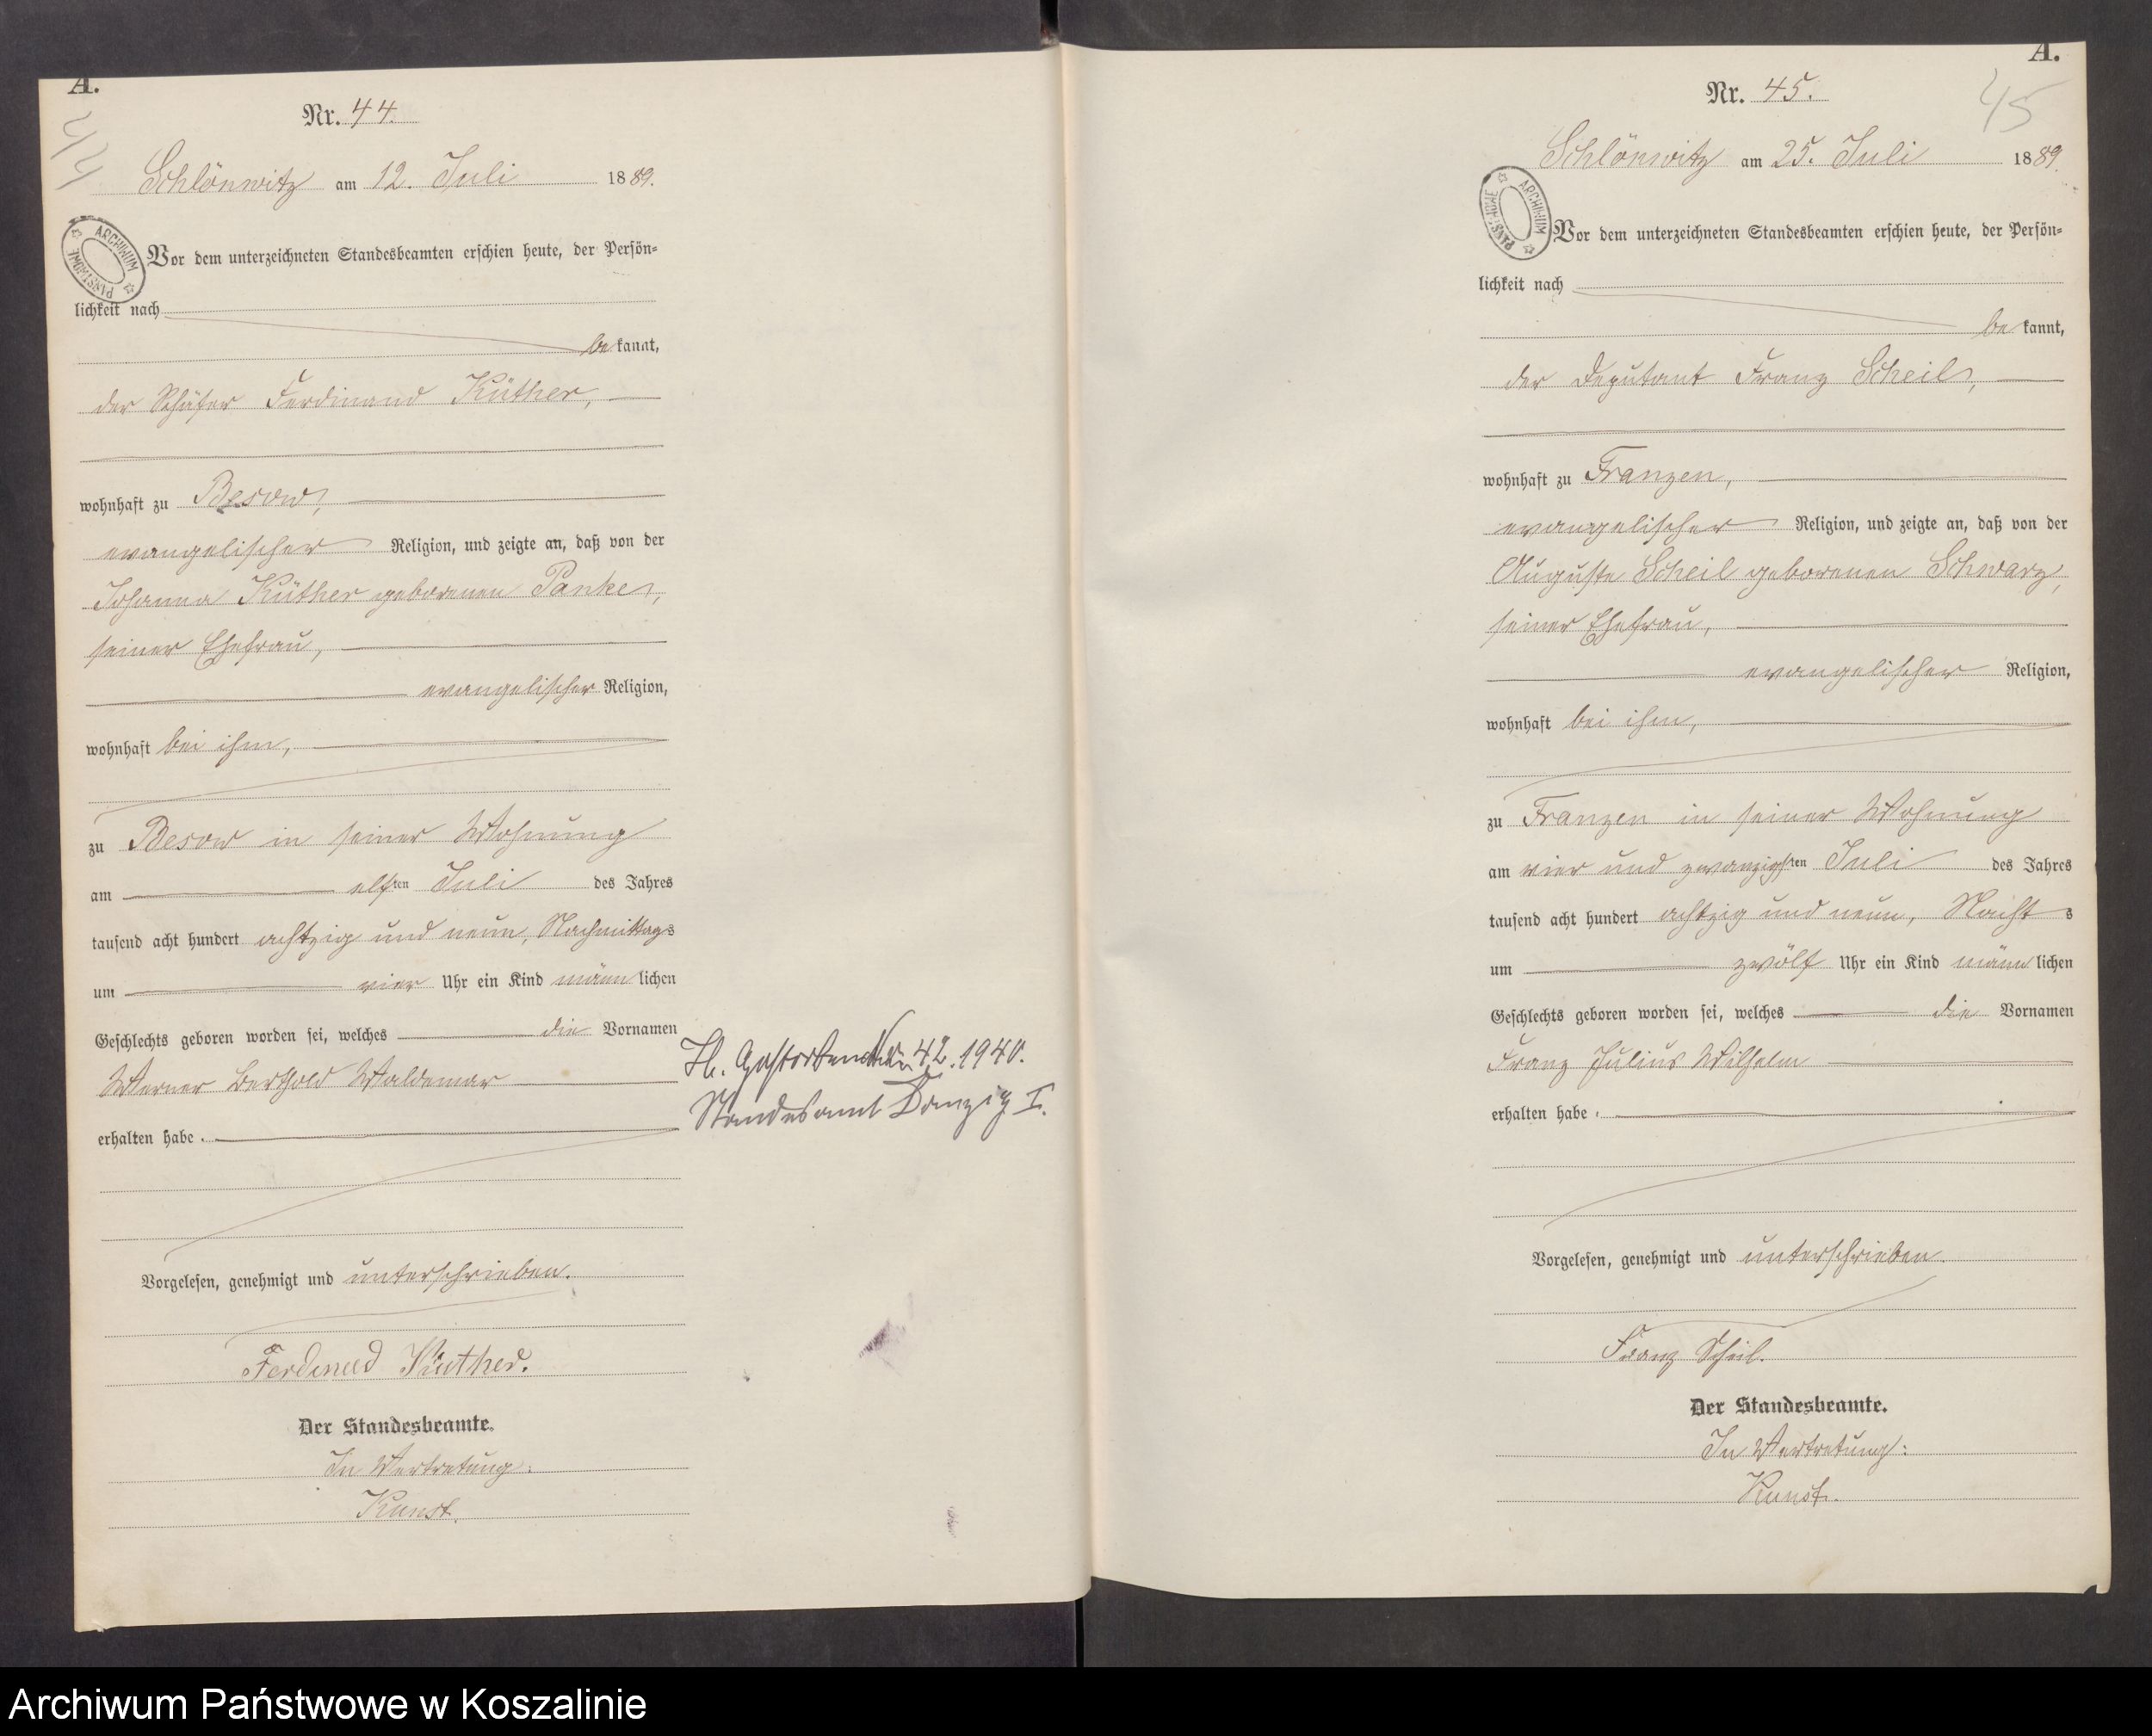 A.
Nr. 44.
44
Schlönwitz am 12. Juli 1889.
ARCHIWUM PAŃSTWOWE
Vor dem unterzeichneten Standesbeamten erschien heute, der Persön=
lichkeit nach
bekannt,
der Schäfer Ferdinand Küther,
wohnhaft zu Besow,
evangelischer Religion, und zeigte an, daß von der
Johanna Küther geborenen Panke,
seiner Ehefrau,
evangelischer Religion,
wohnhaft bei ihm,
zu Besow in seiner Wohnung
am elften Juli des Jahres
tausend acht hundert achtzig und neun, Nachmittags
um vier Uhr ein Kind männlichen
Geschlechts geboren worden sei, welches die Vornamen
Werner Berthold Waldemar
erhalten habe.
Vorgelesen, genehmigt und unterschrieben.
Ferdinand Küther.
Der Standesbeamte.
In Vertretung:
Kunst.
Gestorben Nr. 42.1940.
Standesamt Danzig I.
A.
Nr. 45.
45
Schlönwitz am 25. Juli 1889.
ARCHIWUM PAŃSTWOWE
Vor dem unterzeichneten Standesbeamten erschien heute, der Persön=
lichkeit nach
bekannt,
der Deputant Franz Scheil,
wohnhaft zu Franzen,
evangelischer Religion, und zeigte an, daß von der
Auguste Scheil geborenen Schwarz,
seiner Ehefrau,
evangelischer Religion,
wohnhaft bei ihm,
zu Franzen in seiner Wohnung
am vier und zwanzigsten Juli des Jahres
tausend acht hundert achtzig und neun, Nachts
um zwölf Uhr ein Kind männlichen
Geschlechts geboren worden sei, welches die Vornamen
Franz Julius Wilhelm
erhalten habe.
Vorgelesen, genehmigt und unterschrieben.
Franz Scheil.
Der Standesbeamte.
In Vertretung:
Kunst.
Archiwum Państwowe w Koszalinie